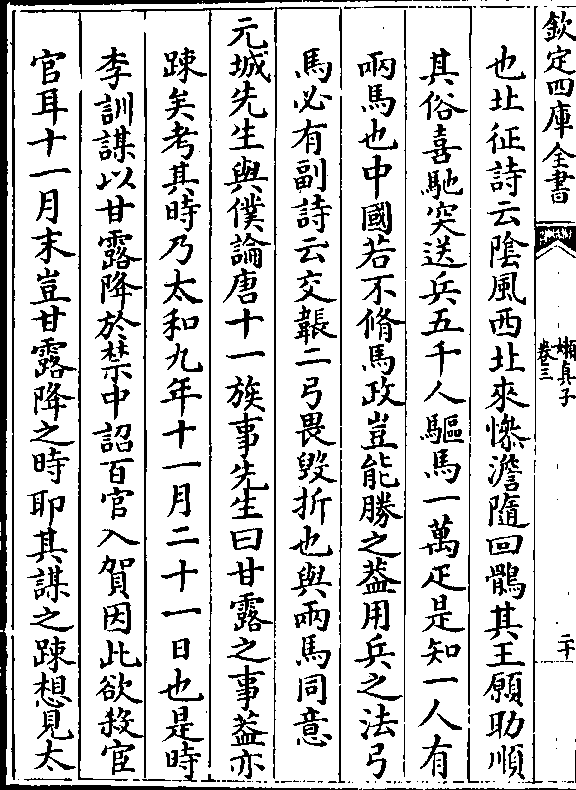 欽定四庫全書
懶真子
卷三
二十
也北征詩云陰風西北來慘澹隨回鶻其王願助順
其俗喜馳突送兵五千人驅馬一萬疋是知一人有
兩馬也中國若不脩馬政豈能勝之葢用兵之法弓
馬必有副詩云交韔二弓畏毀折也與兩馬同意
元城先生與僕論唐十一族事先生曰甘露之事葢亦
踈矣考其時乃太和九年十一月二十一日也是時
李訓謀以甘露降於禁中詔百官入賀因此欲殺宦
官耳十一月末豈甘露降之時耶其謀之踈想見太